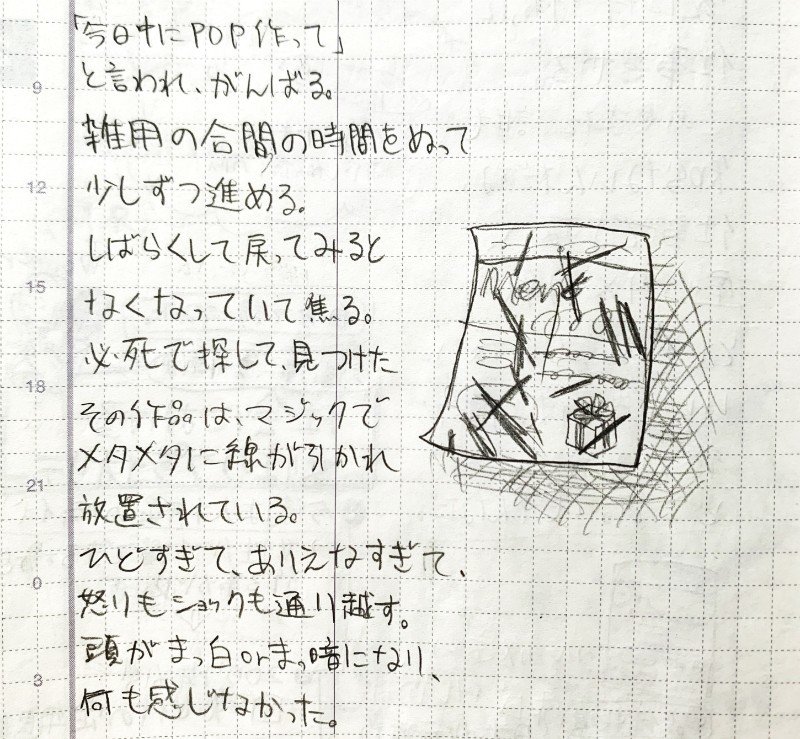 「今日中にPOP作って」
と言われ、がんばる。
雑用の合間の時間をぬって
少しずつ進める。
しばらくして戻ってみると
なくなっていて焦る。
必死で探して、見つけた
その作品は、マジックで
メタメタに線が引かれ
放置されている。
ひどすぎて、ありえなすぎて、
怒りもショックも通り越す。
頭がまっ白orまっ暗になり、
何も感じなかった。
9
12
15
18
21
0
3